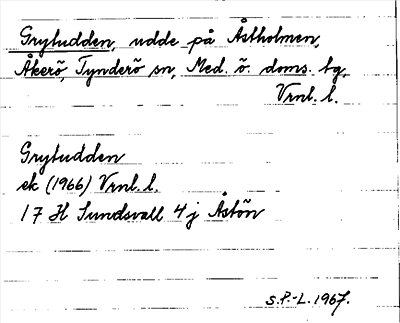 Grytudden, udde på Åstholmen,
Åkerö, Tynderö sn, Med. ö. doms. tg,
Vrnl. l.
Grytudden
ek (1966) Vrnl. l.
17 H Sundsvall 4 j Åstön
S.P.-L. 1967.